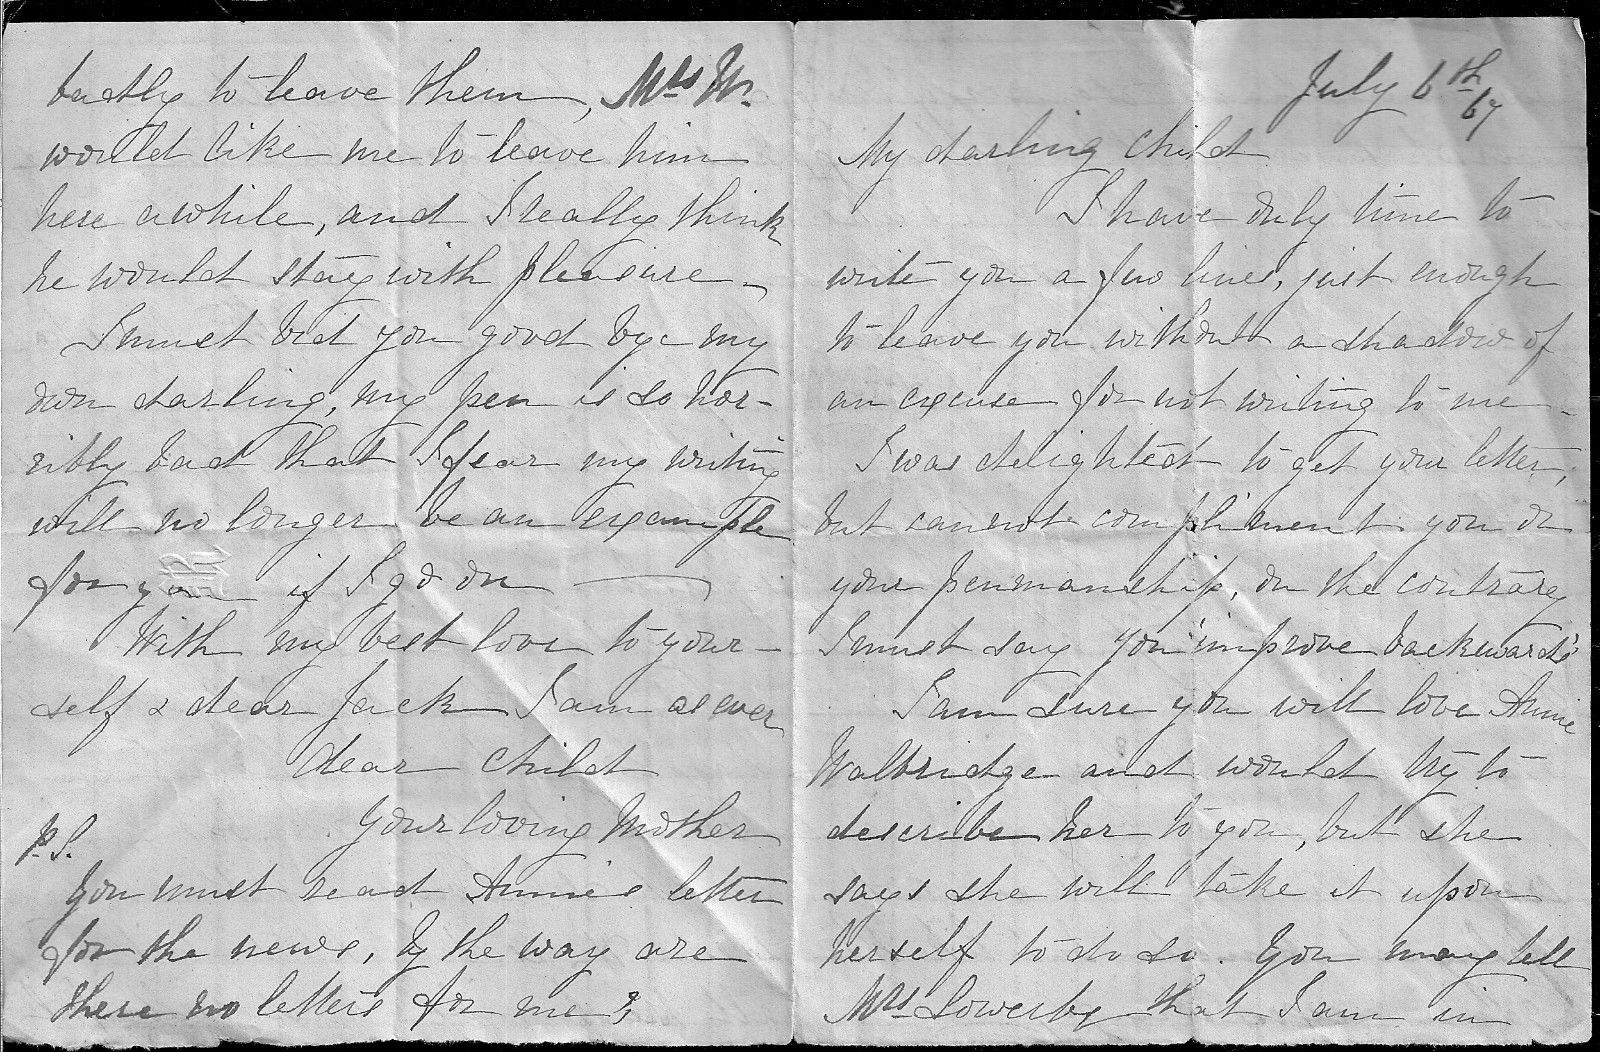 July 6th 67
My darling child
I have only time to
write you a few lines, just enough
to leave you without a shadow of
an excuse for not writing to me -
I was delighted to get your letter,
but cannot compliment you on
your penmanship, on the contrary
I must say you "improve backwards"
I am sure you will love Annie
Walbridge and would try to
describe her to you, but she
says she will take it upon
herself to do so. You may tell
Mrs Sowerby that I am in
to leave them, Mrs W.
would like me to leave him
here awhile, and I really think
he would stay with pleasure -
I must bid you good bye my
own darling, my pen is so hor-
ribly bad that I fear my writing
will no longer be an example
for you if I go on —
With my best love to your-
self & dear Jack I am as ever
dear child
Your loving Mother
P.S.
You must read Annie's letter
for the news, by the way are
there no letters for me?